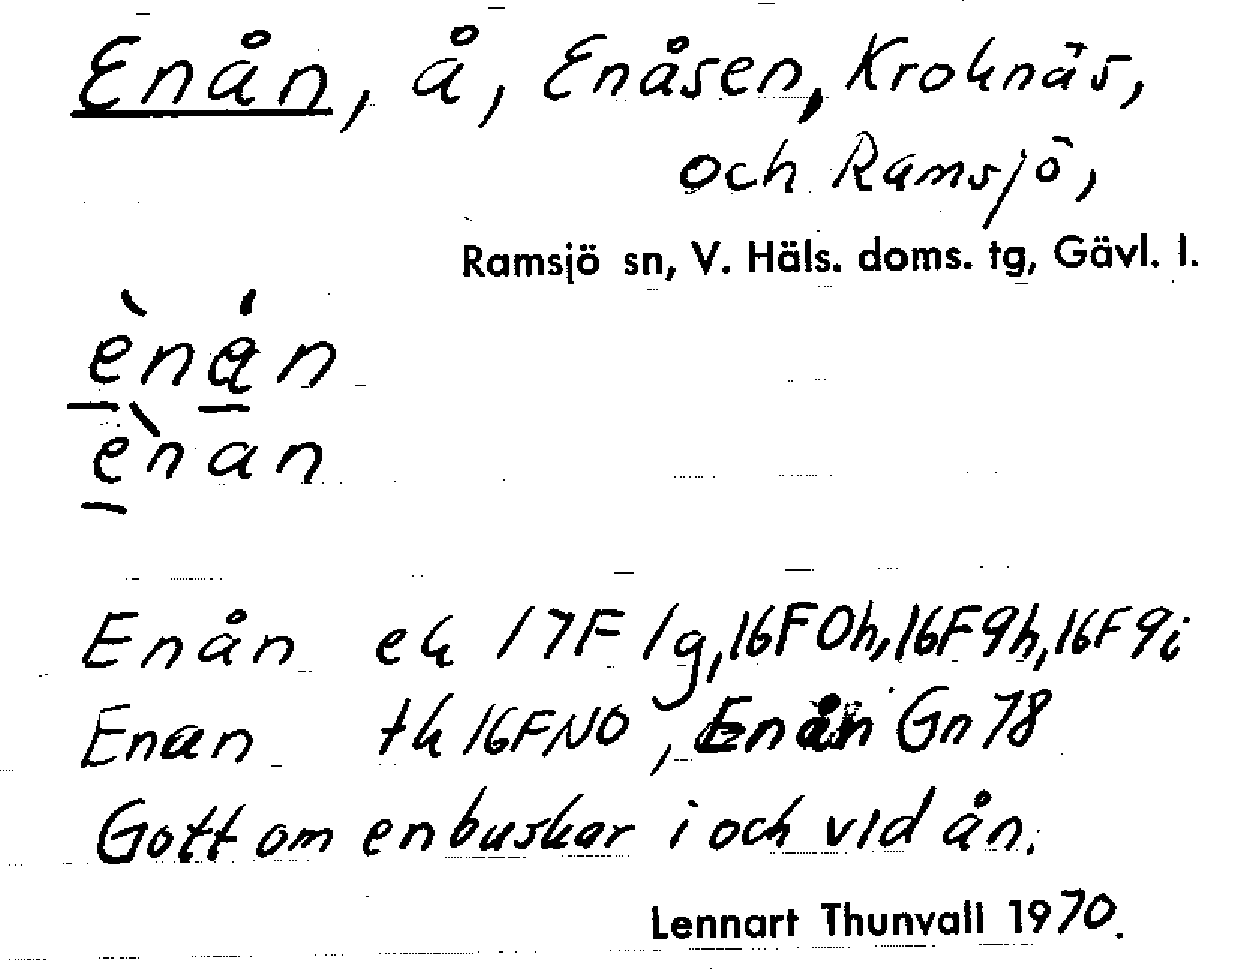 Enån, å, Enåsen, Kroknäs,
och Ramsjö,
Ramsjö sn, V. Häls. doms. tg, Gävl. l.
ènán
ènan
Enån ek 17F1g, 16F0h, 16F9h, 16F9i
Enan tk 16FNO, Enån Gn 78
Gott om enbuskar i och vid ån.
Lennart Thunvall 1970.